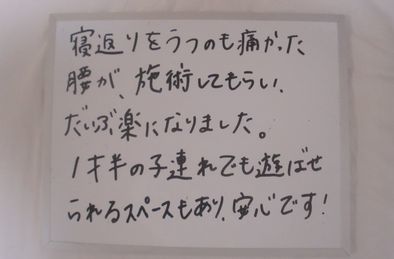 寝返りをうつのも痛かった
腰が、施術してもらい、
だいぶ楽になりました。
1才半の子連れでも遊ばせ
られるスペースもあり、安心です!